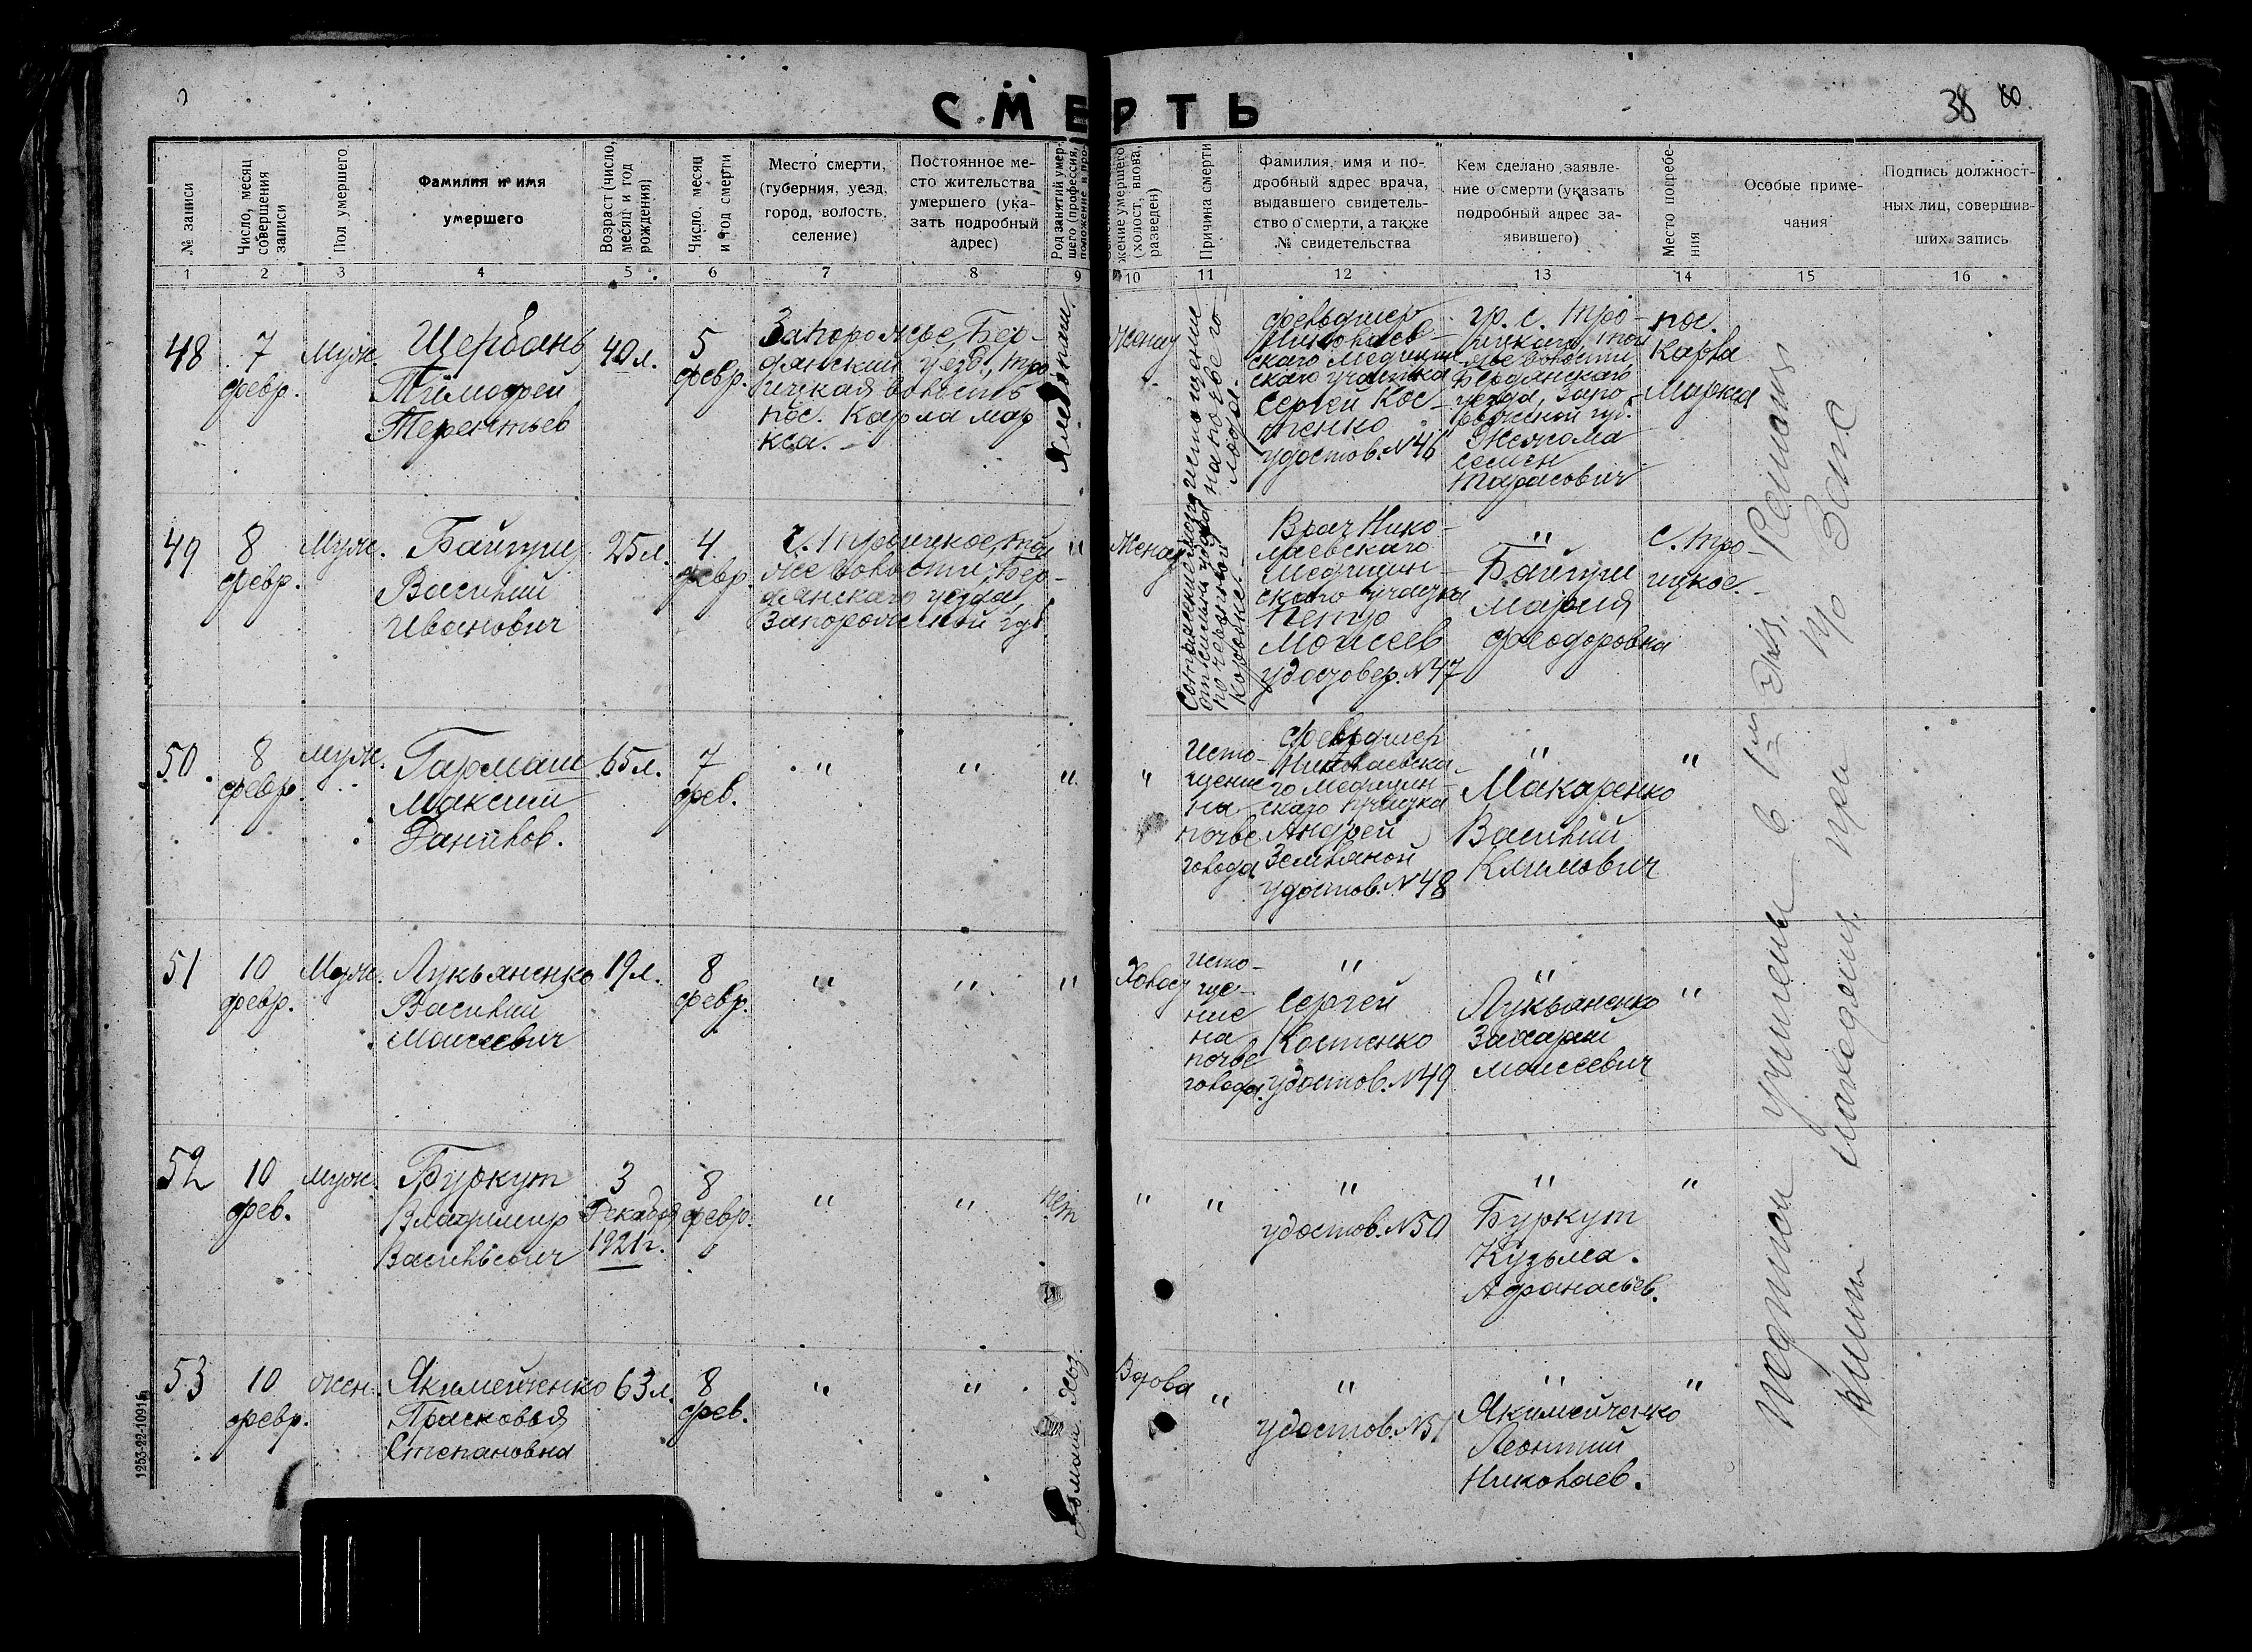 СМЕРТЬ
38 80
№ записи
Число, месяц совершения записи
Пол умершего
Фамилия и имя
умершего
Возраст (число, месяц и год рождения)
Число, месяц и год смерти
Место смерти,
(губерния, уезд,
город, волость,
селение)
Постоянное ме-
сто жительства
умершего (ука-
зать подробный
адрес)
Род занятий умер-
шего (профессия,
положение в про-
жение умершего
(холост, вдова,
разведен)
Причина смерти
Фамилия, имя и по-
дробный адрес врача,
выдавшего свидетель-
ство о смерти, а также
№ свидетельства
Кем сделано заявле-
ние о смерти (указать
подробный адрес за-
явившего)
Место погребе-
ния
Особые приме-
чания
Подпись должност-
ных лиц, совершив-
ших запись
1 2 3 4 5 6 7 8 9 10 11 12 13 14 15 16
48
7
февр.
Муж.
Щербань
Тимофей
Терентьев
40 л.
5
февр.
Запорожье, Бер-
дянский уезд, Тро
ицкая волость
пос. Карла Мар
кса.
Хлебопаш.
Женат
истощение
на почве го-
лода.
фельдшер
Николаев-
ского Медицин
ского участка
Сергей Кос-
тенко
удостов. №46
гр. с. Тро-
ицкаго, той
же волости
Бердянскаго
уезда, Запо-
рожской губ.
Семен
Тарасович
пос.
Карла
Маркса
49
8
февр.
Муж.
Байтуш
Василий
Иванович
25 л.
4
февр.
с. Троицкое, той
же волости, Бер-
дянскаго уезда,
Запорожской губ.
"
Женат
Врач Нико-
лаевскаго
Медицин-
скаго участка
Петр
Моисеев
удостовер. №47
"
Байтуш
Мария
Феодоровна
с. Тро-
ицкое.
50.
8
февр.
муж.
Гармаш
Максим
Данилов.
65 л.
7
фев.
"
"
"
"
Исто-
щение
на
почве
голода
фельдшер
Николаевска-
го Медицин-
скаго участка
Андрей
Земляной
удостов. №48
"
Макаренко
Василий
Климович
"
51
10
февр.
Муж.
Лукьяненко
Василий
Моисеевич
19 л.
8
февр.
"
"
"
Холост
Исто-
ще-
ние
на
почве
голода.
"
Сергей
Костенко
удостов. №49
"
Лукьяненко
Захарий
Моисеевич
"
52
10
фев.
муж.
Буркут
Владимир
Васильевич
3
Декабря
1921 г.
8
февр.
"
"
нет
"
"
"
удостов. №50
"
Буркут
Кузьма.
Афанасьев.
"
53
10
февр.
жен.
Якимейченко
Прасковья
Степановна
63 л.
8
фев.
"
"
Домаш. хоз.
Вдова
"
"
удостов. №51
"
Якимейченко
Леонтий
Николаев.
"
1253-22-10915